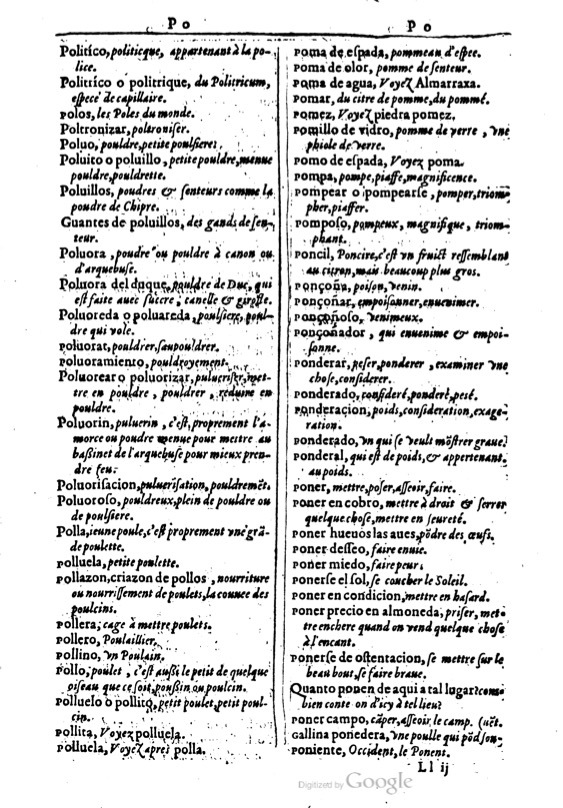 Po
Politico, politicque, appartenant à la po-
lice.
Politrico o politrique, du Politricum,
espece de capillaire.
Polos, les Poles du monde.
Poltronizar, poltroniser.
Poluo, pouldre, petite poulsiere.
Poluito o poluillo, petite pouldre, menue
pouldre, pouldrette.
Poluillos, poudres & senteurs comme la
poudre de Chipre.
Guantes de poluillos, des gands de sen-
teur.
Poluora, poudre ou pouldre à canon ou
d'arquebuse.
Poluora del duque, pouldre de Duc, qui
est faite auec succre, canelle & girofle.
Poluoreda o poluareda, poulsiere, poul-
dre qui vole.
Poluorar, pouldrer, saupouldrer.
Poluoramiento, pouldroyement.
Poluorear o poluorizar, pulueriser, met-
tre en pouldre, pouldrer, reduire en
pouldre.
Poluorin, puluerin, c'est, proprement l'a-
morce ou poudre menue pour mettre au
bassinet de l'arquebuse pour mieux pren-
dre feu.
Poluorisacion, puluerisation, pouldremẽt.
Poluoroso, pouldreux, plein de pouldre ou
de poulsiere.
Polla, ieune poule, c'est proprement vne grã-
de poulette.
Polluela, petite poulette.
Pollazon, criazon de pollos, nourriture
ou nourrissement de poulets, la couuee des
poulcins.
Pollera, cage à mettre poulets.
Pollero, Poulaillier.
Pollino, vn Poulain.
Pollo, poulet, c'est aussi le petit de quelque
oiseau que ce soit, poussin ou poulcin.
Polluelo o pollito, petit poulet, petit poul-
cin.
Pollita, Voyez polluela.
Polluela, Voyez aprei polla.
Po
Poma de espada, pommeau d'espee.
Poma de olor, pomme de senteur.
Poma de agua, Voyez Almarraxa.
Pomar, du citre de pomme, du pommé.
Pomez, Voyez piedra pomez.
Pomillo de vidro, pomme de verre, vne
phiole de verre.
Pomo de espada, Voyez poma.
Pompa, pompe, piaffe, magnificence.
Pompear o pompearse, pomper, triom-
pher, piaffer.
Pomposo, pompeux, magnifique, triom-
phant.
Poncil, Poncire, c'est vn fruict ressemblant
au citron, mais beaucoup plus gros.
Ponçoña, poison, venin.
Ponçoñar, empoisonner, enuenimer.
Ponçoñoso, venimeux.
Ponçoñador, qui enuenime & empoi-
sonne.
Ponderar, peser, ponderer, examiner vne
chose, considerer.
Ponderado, consideré, ponderé, pesé.
Ponderacion, poids, consideration, exage-
ration.
Ponderado, vn qui se veult mõstrer graue.
Ponderal, qui est de poids, & appertenant
au poids.
Poner, mettre, poser, asseoir, faire.
Poner en cobro, mettre à droit & serrer
quelque chose, mettre en seureté.
Poner hueuos las aues, põdre des œufs.
Poner desseo, faire enuie.
Poner miedo, faire peur.
Ponerse el sol, se coucher le Soleil.
Poner en condicion, mettre en hasard.
Poner precio en almoneda, priser, met-
tre enchere quand on vend quelque chose
à l'encant.
Ponerse de ostentacion, se mettre sur le
beau bout, se faire braue.
Quanto ponen de aqui a tal lugar? com-
bien conte on d'icy à tel lieu?
Poner campo, cãper, asseoir le camp. (uẽt.
Gallina ponedera, vne poulle qui põd sou-
Poniente, Occident, le Ponent.
Ll ij
Digitized by Google